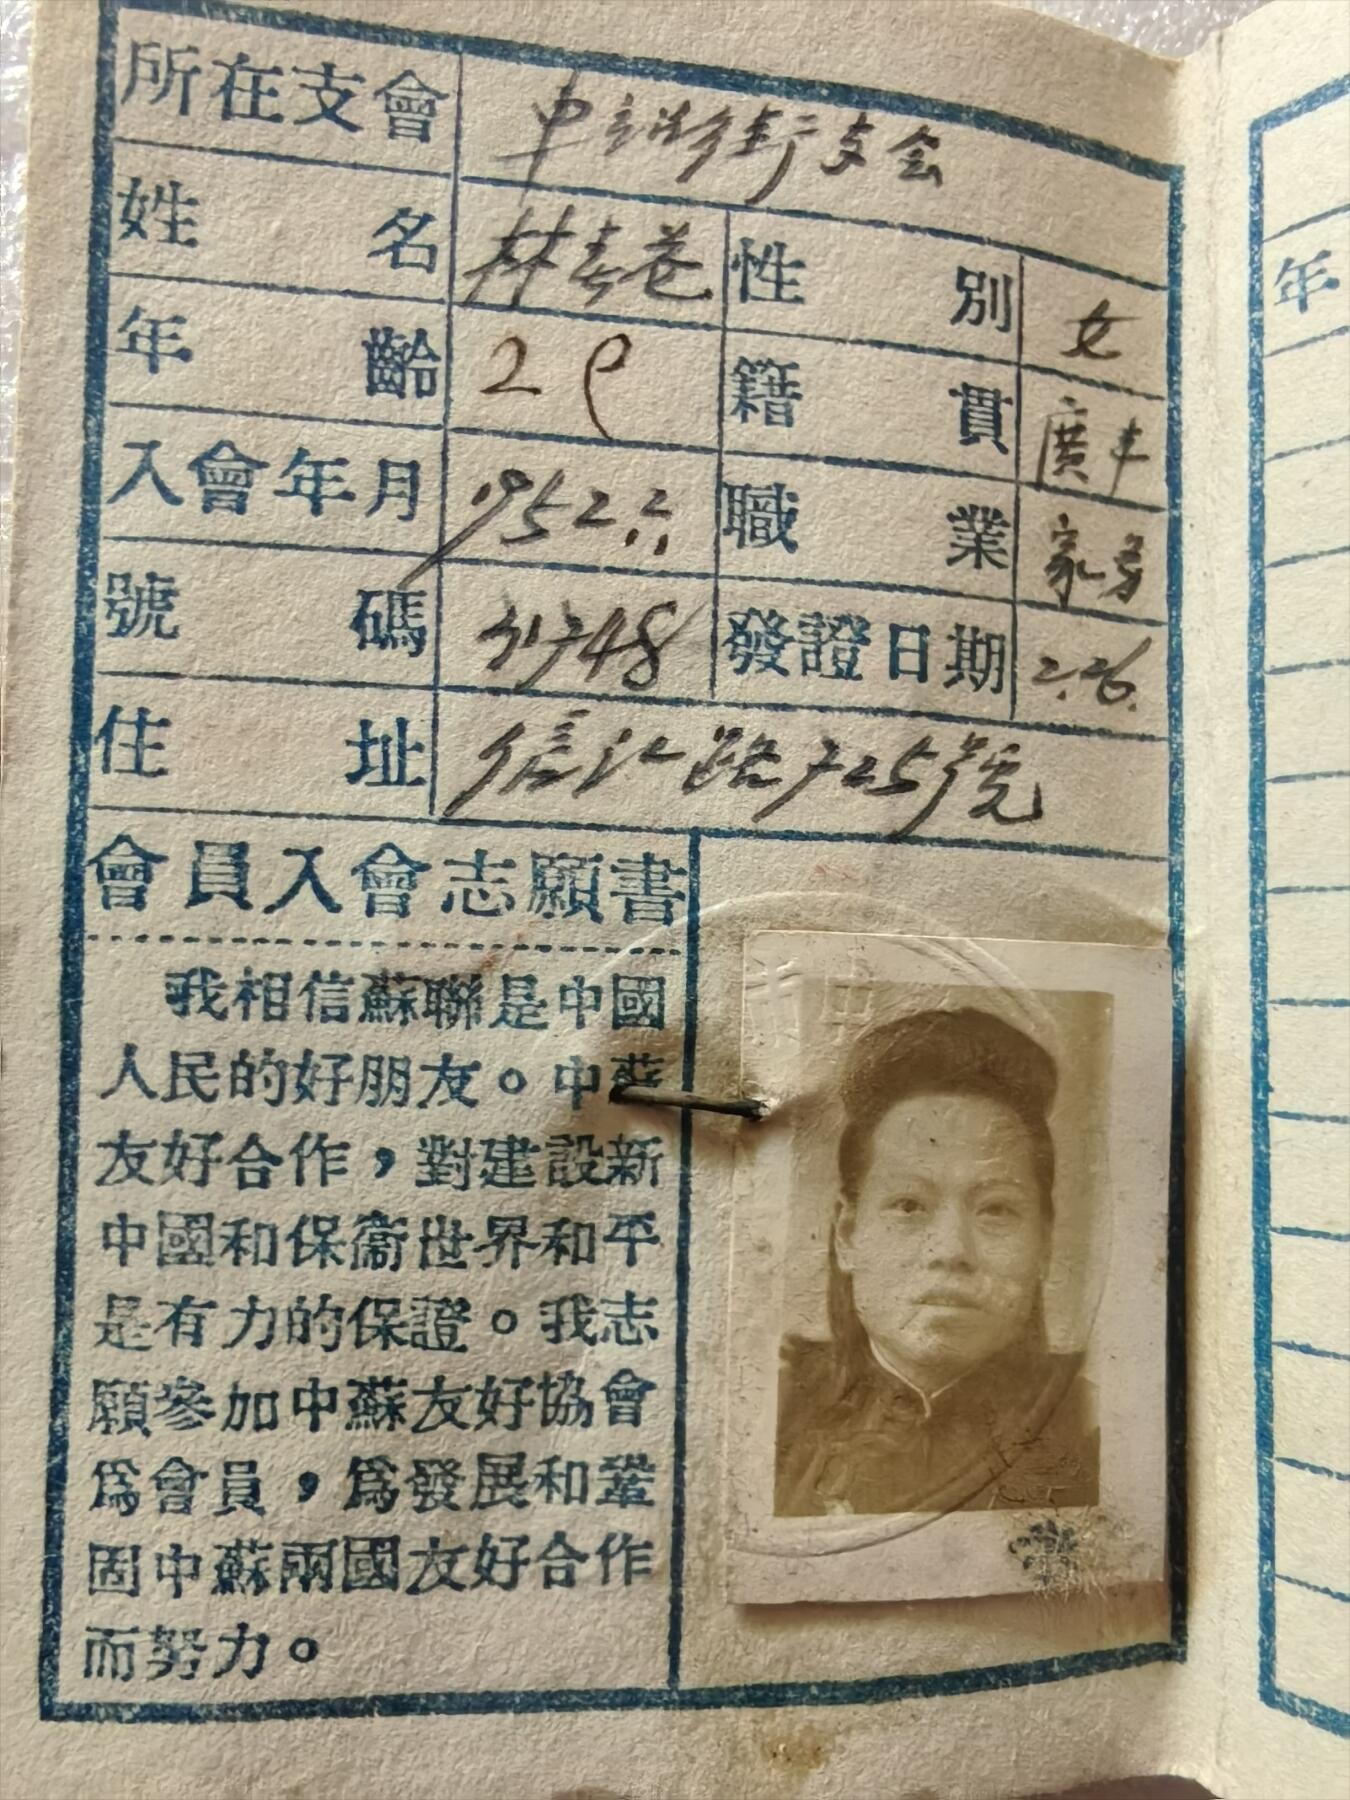 所在支會 街支会
姓名 林春卷 性別 女
年齡 29 籍貫 廣丰
入會年月 1952.六 職業 家务
號碼 48 發證日期 2.26.
住址 信江路725號
會員入會志願書
我相信蘇聯是中國
人民的好朋友。中蘇
友好合作，對建設新
中國和保衞世界和平
是有力的保證。我志
願參加中蘇友好協會
爲會員，爲發展和鞏
固中蘇兩國友好合作
而努力。
年